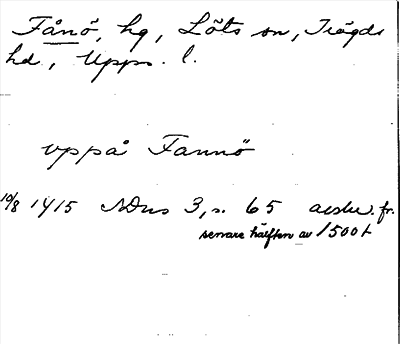 Fånö, hg, Löts sn, Trögds
hd, Upps. l.
uppå Fannö
10/8 1415 SDns 3, s. 65 avskr. fr.
senare hälften av 1500 t